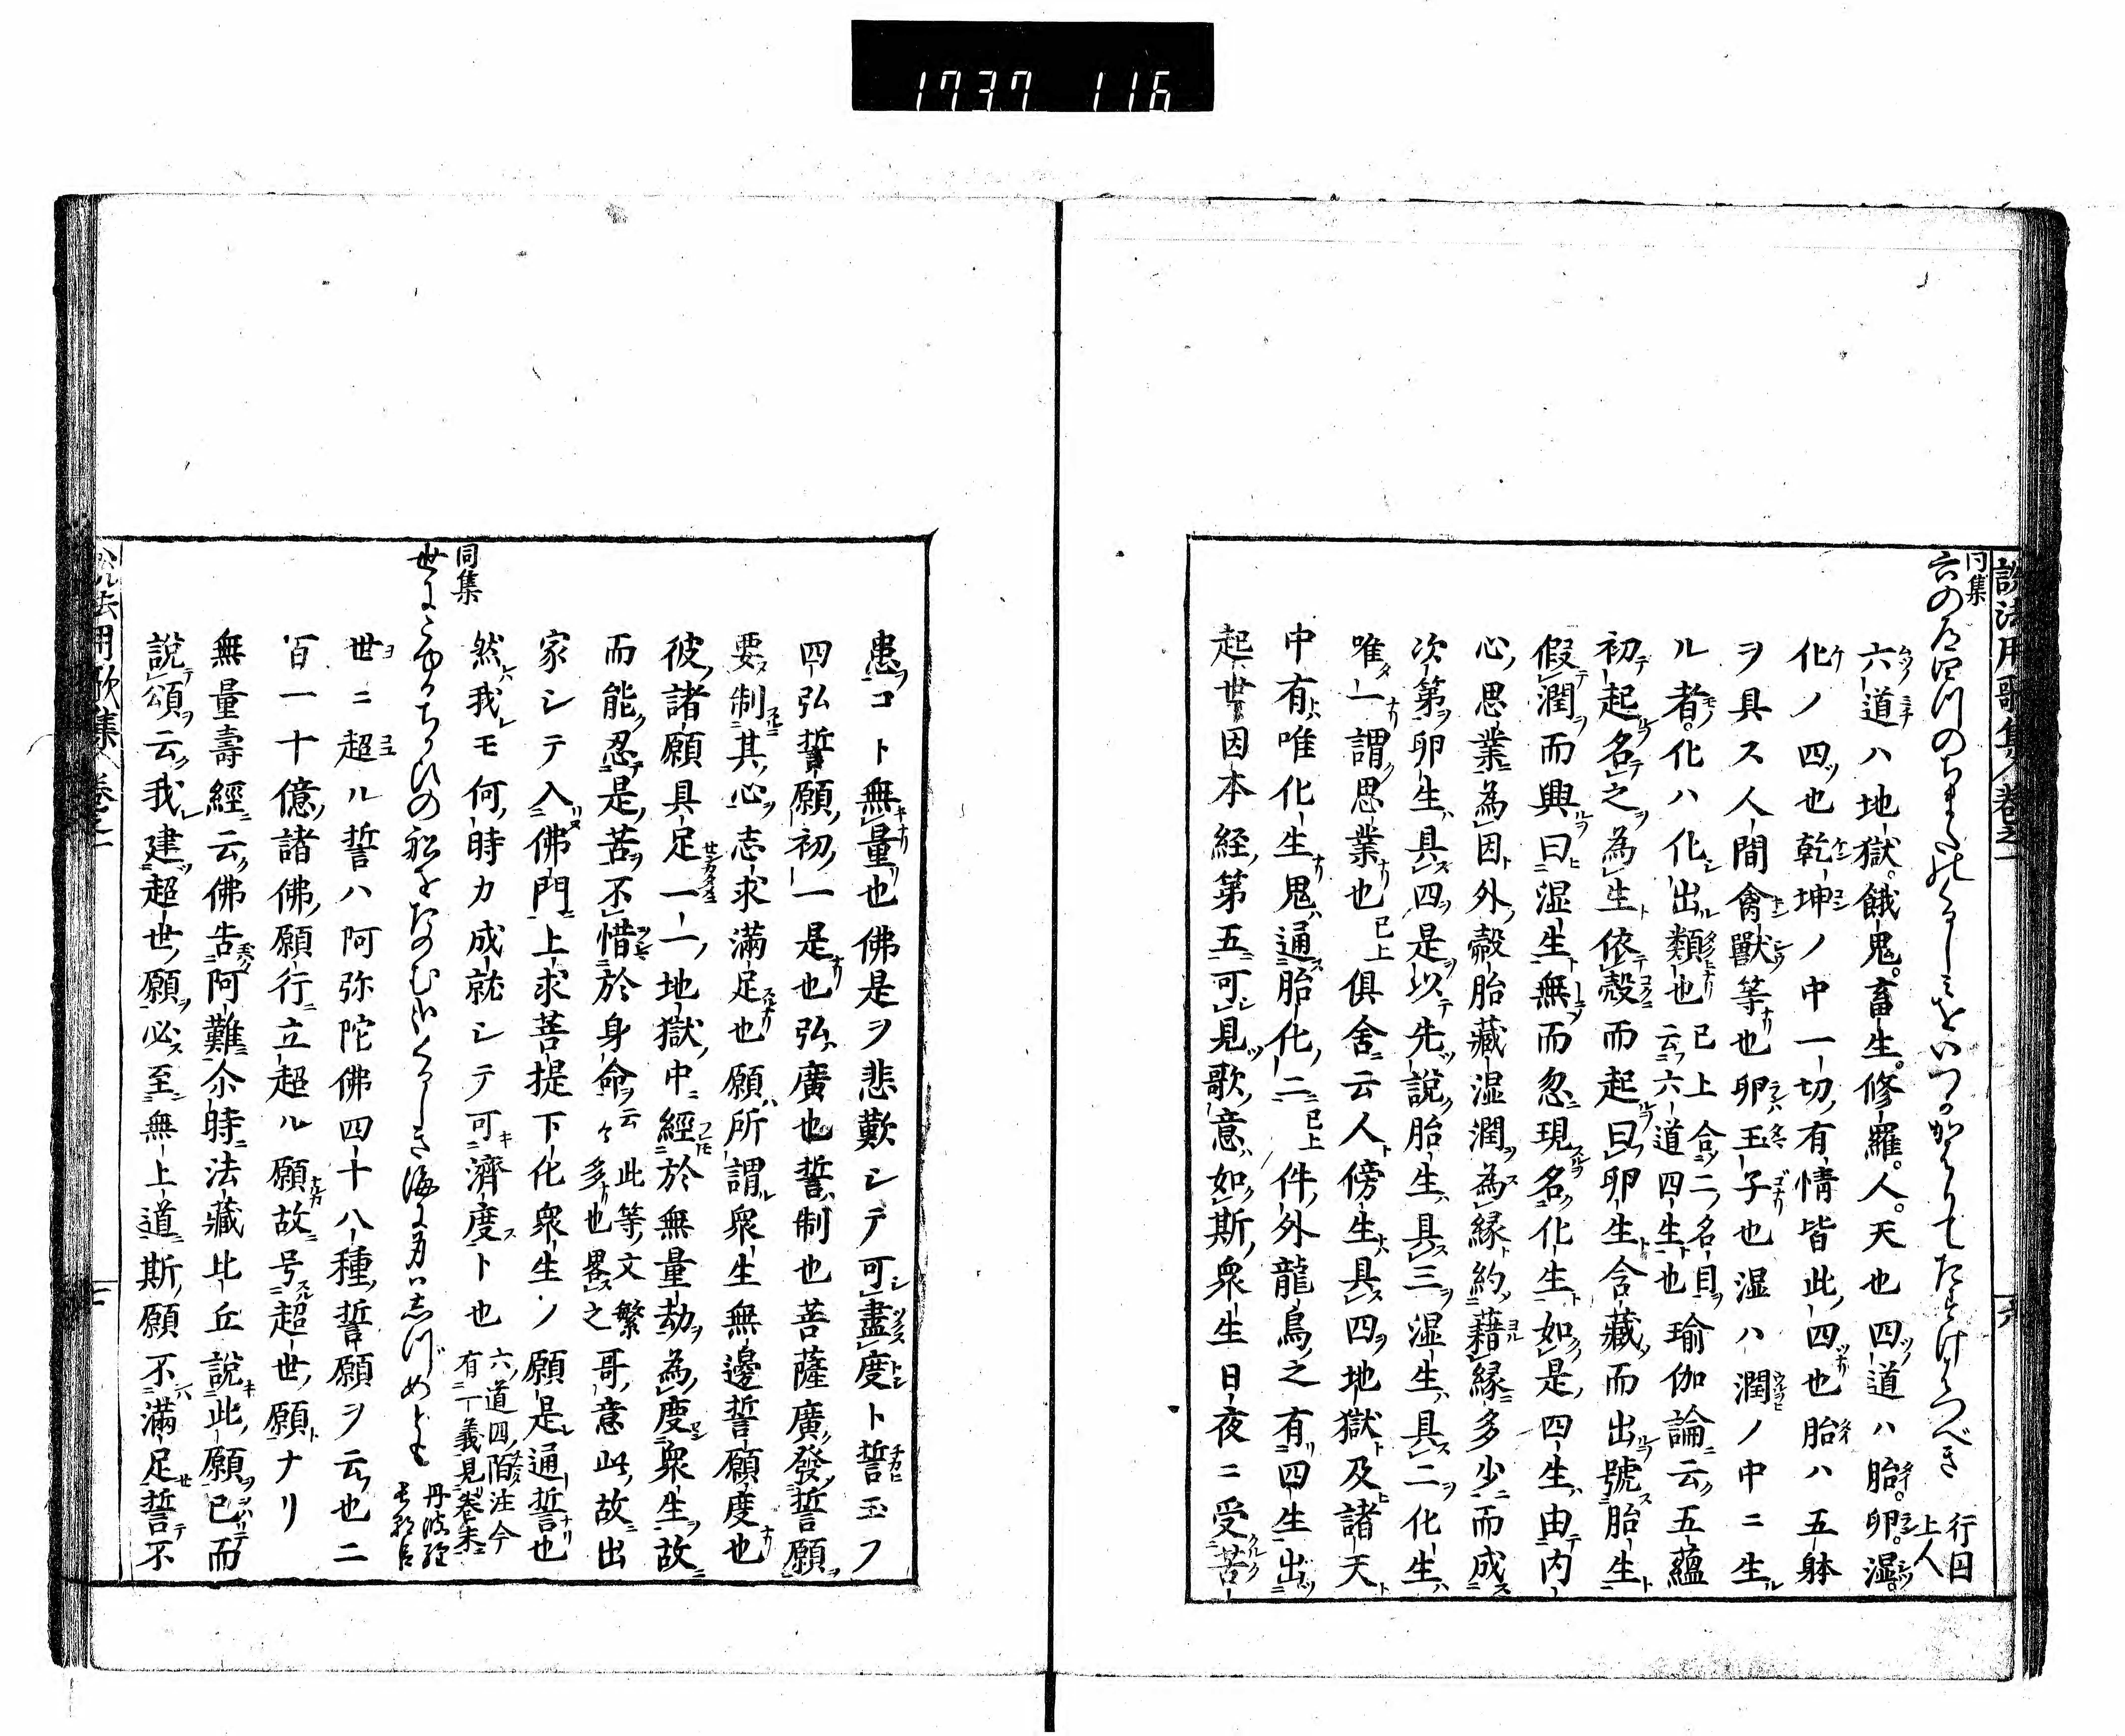 1737 116
説法用歌集 巻之一
同集
行因上人
六道ハ地獄。餓鬼。畜生。修羅。人。天也四道ハ胎。卵。湿。
化ノ四也乾坤ノ中一切有情皆此四也胎ハ五躰
ヲ具ス人間禽獣等也卵ハ玉子也湿ハ潤ノ中ニ生
ル者。化ハ化出類也已上合二名目云六道四生也瑜伽論云五蘊
初起名之為生依殻而起曰卵生含藏而出號胎生
假潤而興曰湿生無而忽現名化生如是四生由内
心思業為因外殻胎藏湿潤為縁約藉縁多少而成
次第卵生具四是以先説胎生具三湿生具二化生
唯一謂思業也已上俱舍云人傍生具四地獄及諸天
中有唯化生鬼通胎化二已上件外龍鳥之有四生出
起世因本経第五可見歌意如斯衆生日夜ニ受苦
患コト無量也佛是ヲ悲歎シテ可盡度ト誓玉フ
四弘誓願初一是也弘廣也誓制也菩薩廣發誓願
要制其心志求滿足也願所謂衆生無邊誓願度也
彼諸願具足一一地獄中經於無量劫為度衆生故
而能忍是苦不惜於身命云々此等文繁多也畧之哥意此故出
家シテ入佛門上求菩提下化衆生ノ願是通誓也
然我モ何時カ成就シテ可濟度ト也六道四陌注今有一義見巻末
同集
世にこゆるちかひの船をたのむ哉くるしき海に身はしづめども
世ニ超ル誓ハ阿弥陀佛四十八種誓願ヲ云也二
百一十億諸佛願行立超ル願故号超世願ナリ
無量壽經云佛告阿難尒時法藏比丘説此願已而
説頌云我建超世願必至無上道斯願不滿足誓不
説法用歌集 巻之一